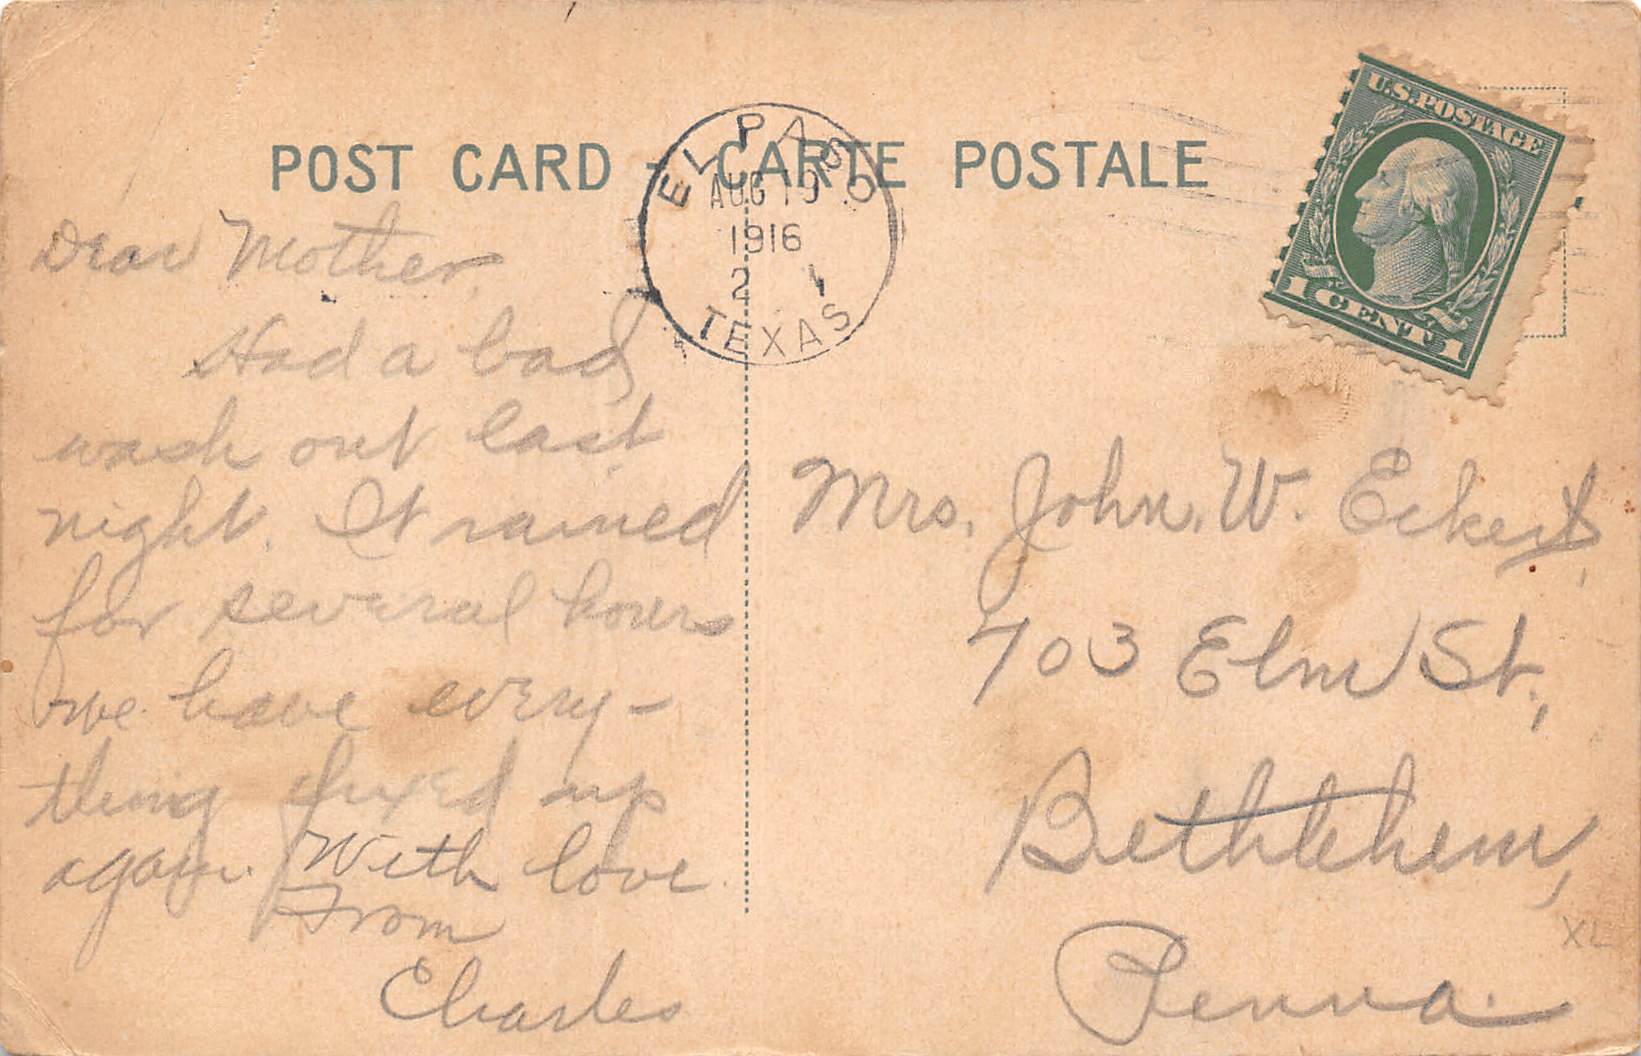 POST CARD - CARTE POSTALE
EL PASO
AUG 19
1916
2
TEXAS
U.S. POSTAGE
1 CENT 1
Dear Mother,
Had a bad
wash out last
night. It rained
for several hours
we have every-
thing fixed up
again. With love
From
Charles
Mrs. John. W. Eckert,
703 Elm St.,
Bethlehem,
Penna.
XL